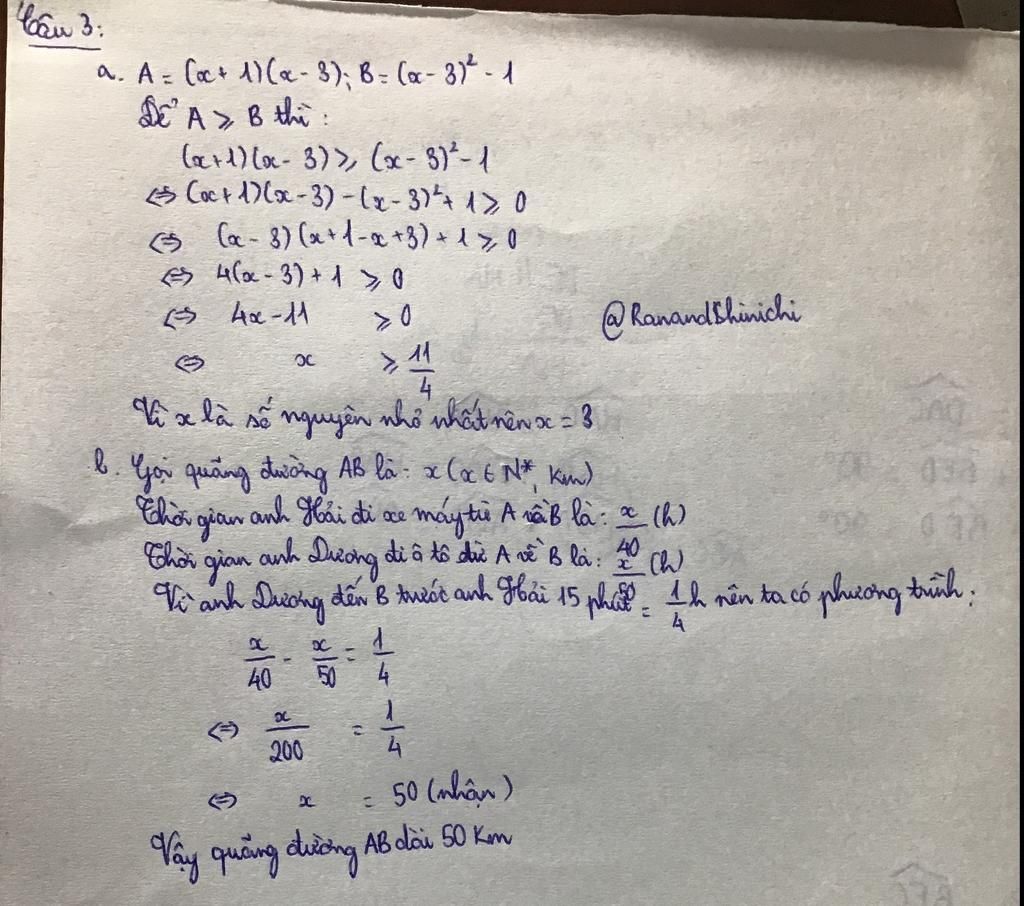 Câu 3:
a. A = (x + 1)(x - 3); B = (x - 3)² - 1
Để A ≥ B thì:
(x+1)(x - 3) ≥ (x - 3)² - 1
⇔ (x + 1)(x - 3) - (x - 3)² + 1 ≥ 0
⇔ (x - 3)(x + 1 - x + 3) + 1 ≥ 0
⇔ 4(x - 3) + 1 ≥ 0
⇔ 4x - 11 ≥ 0
@RanandShinichi
⇔ x ≥ 11/4
Vì x là số nguyên nhỏ nhất nên x = 3
b. Gọi quãng đường AB là: x (x ∈ N*, Km)
Thời gian anh Hải đi xe máy từ A về B là: x/40 (h)
Thời gian anh Dương đi ô tô từ A về B là: x/50 (h)
Vì anh Dương đến B trước anh Hải 15 phút = 1/4 h nên ta có phương trình:
x/40 - x/50 = 1/4
⇔ x/200 = 1/4
⇔ x = 50 (nhận)
Vậy quãng đường AB dài 50 Km